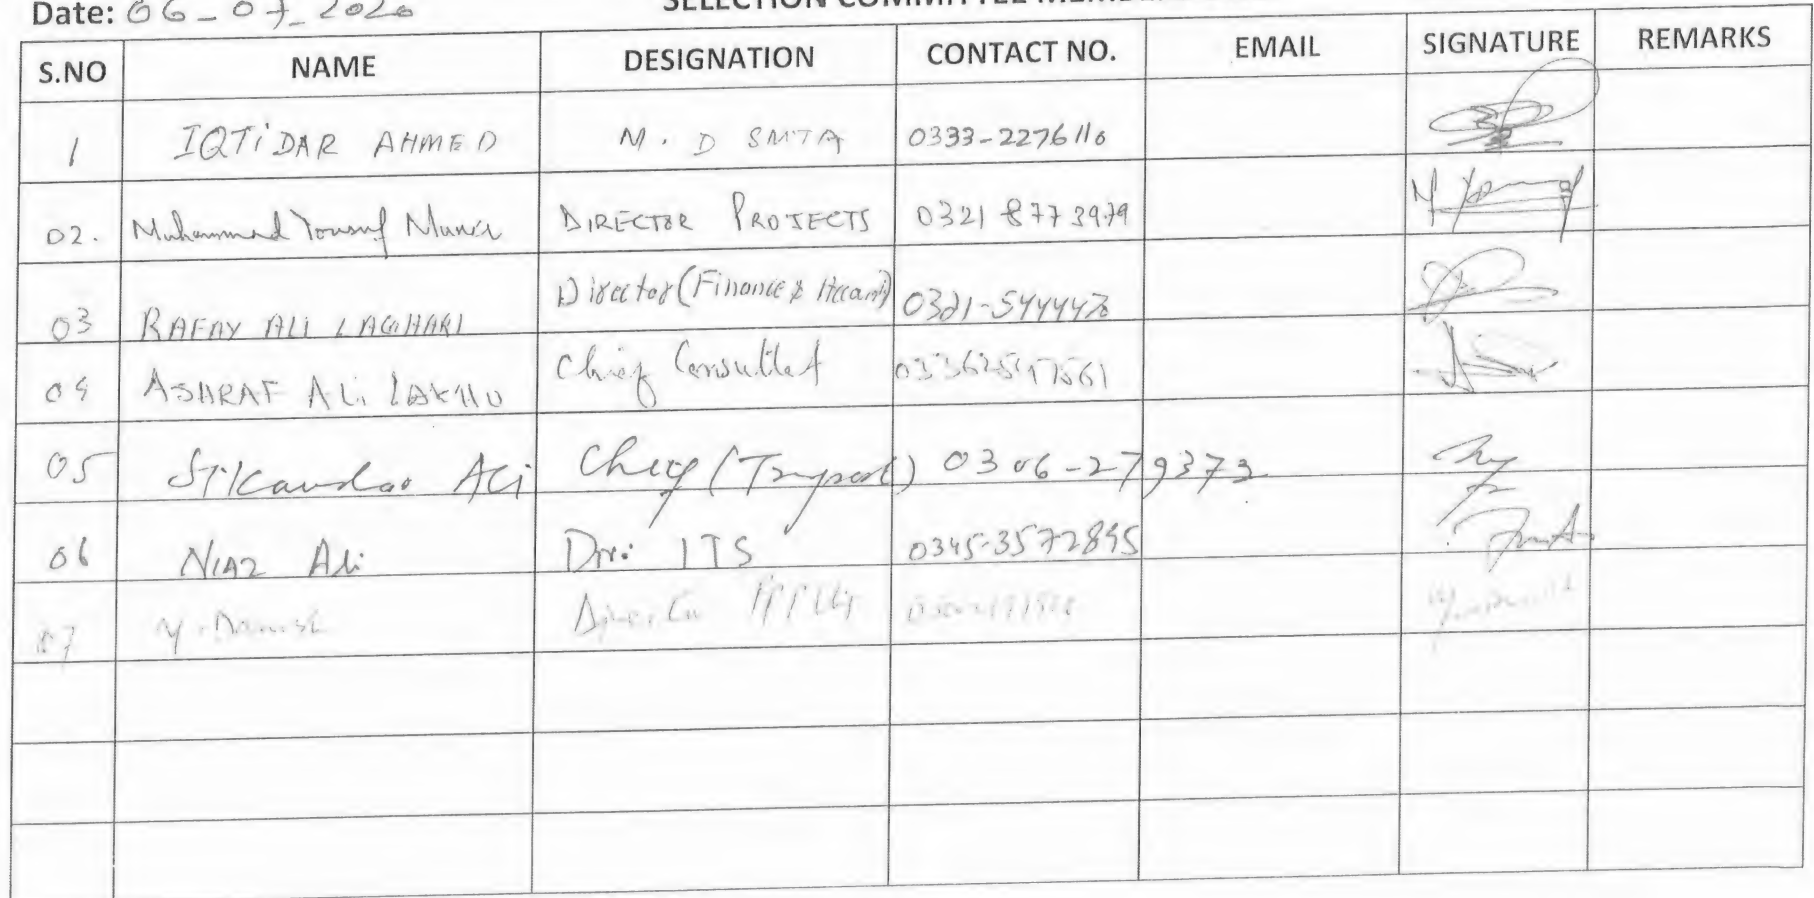 Date: 06-07-2020
SELECTION COMMITTEE
S.NO NAME DESIGNATION CONTACT NO. EMAIL SIGNATURE REMARKS
1 IQTIDAR AHMED M.D SMTA 0333-2276110
02. Muhammad Yousuf Munir DIRECTOR PROJECTS 0321 8773979
03 RAFAY ALI LAGHARI Director (Finance & 0321-5444470
04 ASHRAF ALi LAKHO Chief
05 Ali 0306-279373
06 NIAZ Ali Dir: ITS 0345-3572895
07 M. Danish